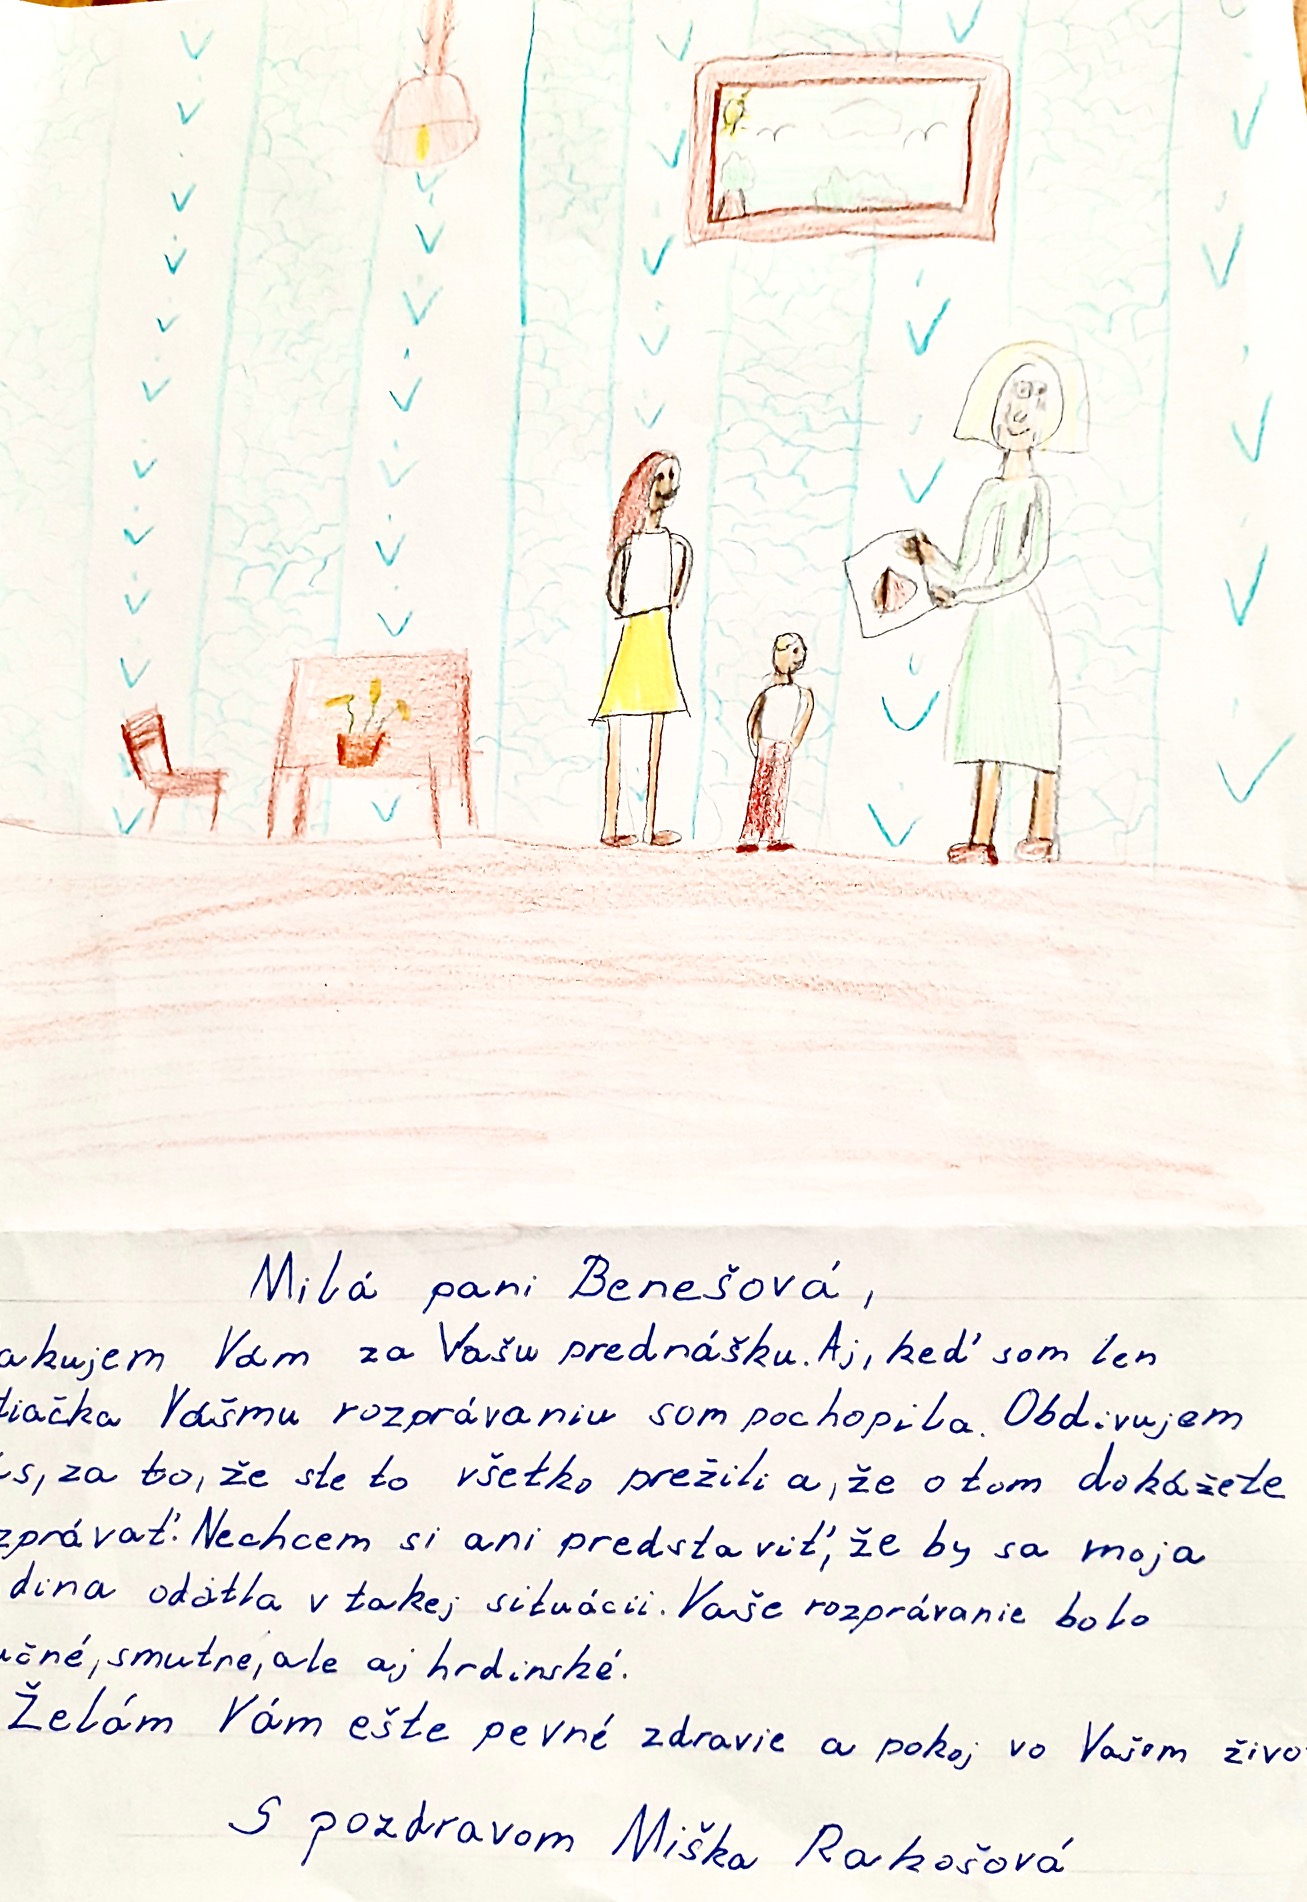 Milá pani Benešová,
akujem Vám za Vašu prednášku. Aj, keď som len
tiačka Vášmu rozprávaniu som pochopila. Obdivujem
s, za to, že ste to všetko prežili a, že o tom dokážete
zprávať. Nechcem si ani predstaviť, že by sa moja
dina odátla v takej situácii. Vaše rozprávanie bolo
učné, smutne, ale aj hrdinské.
Želám Vám ešte pevné zdravie a pokoj vo Vašom živo
S pozdravom Miška Rakošová